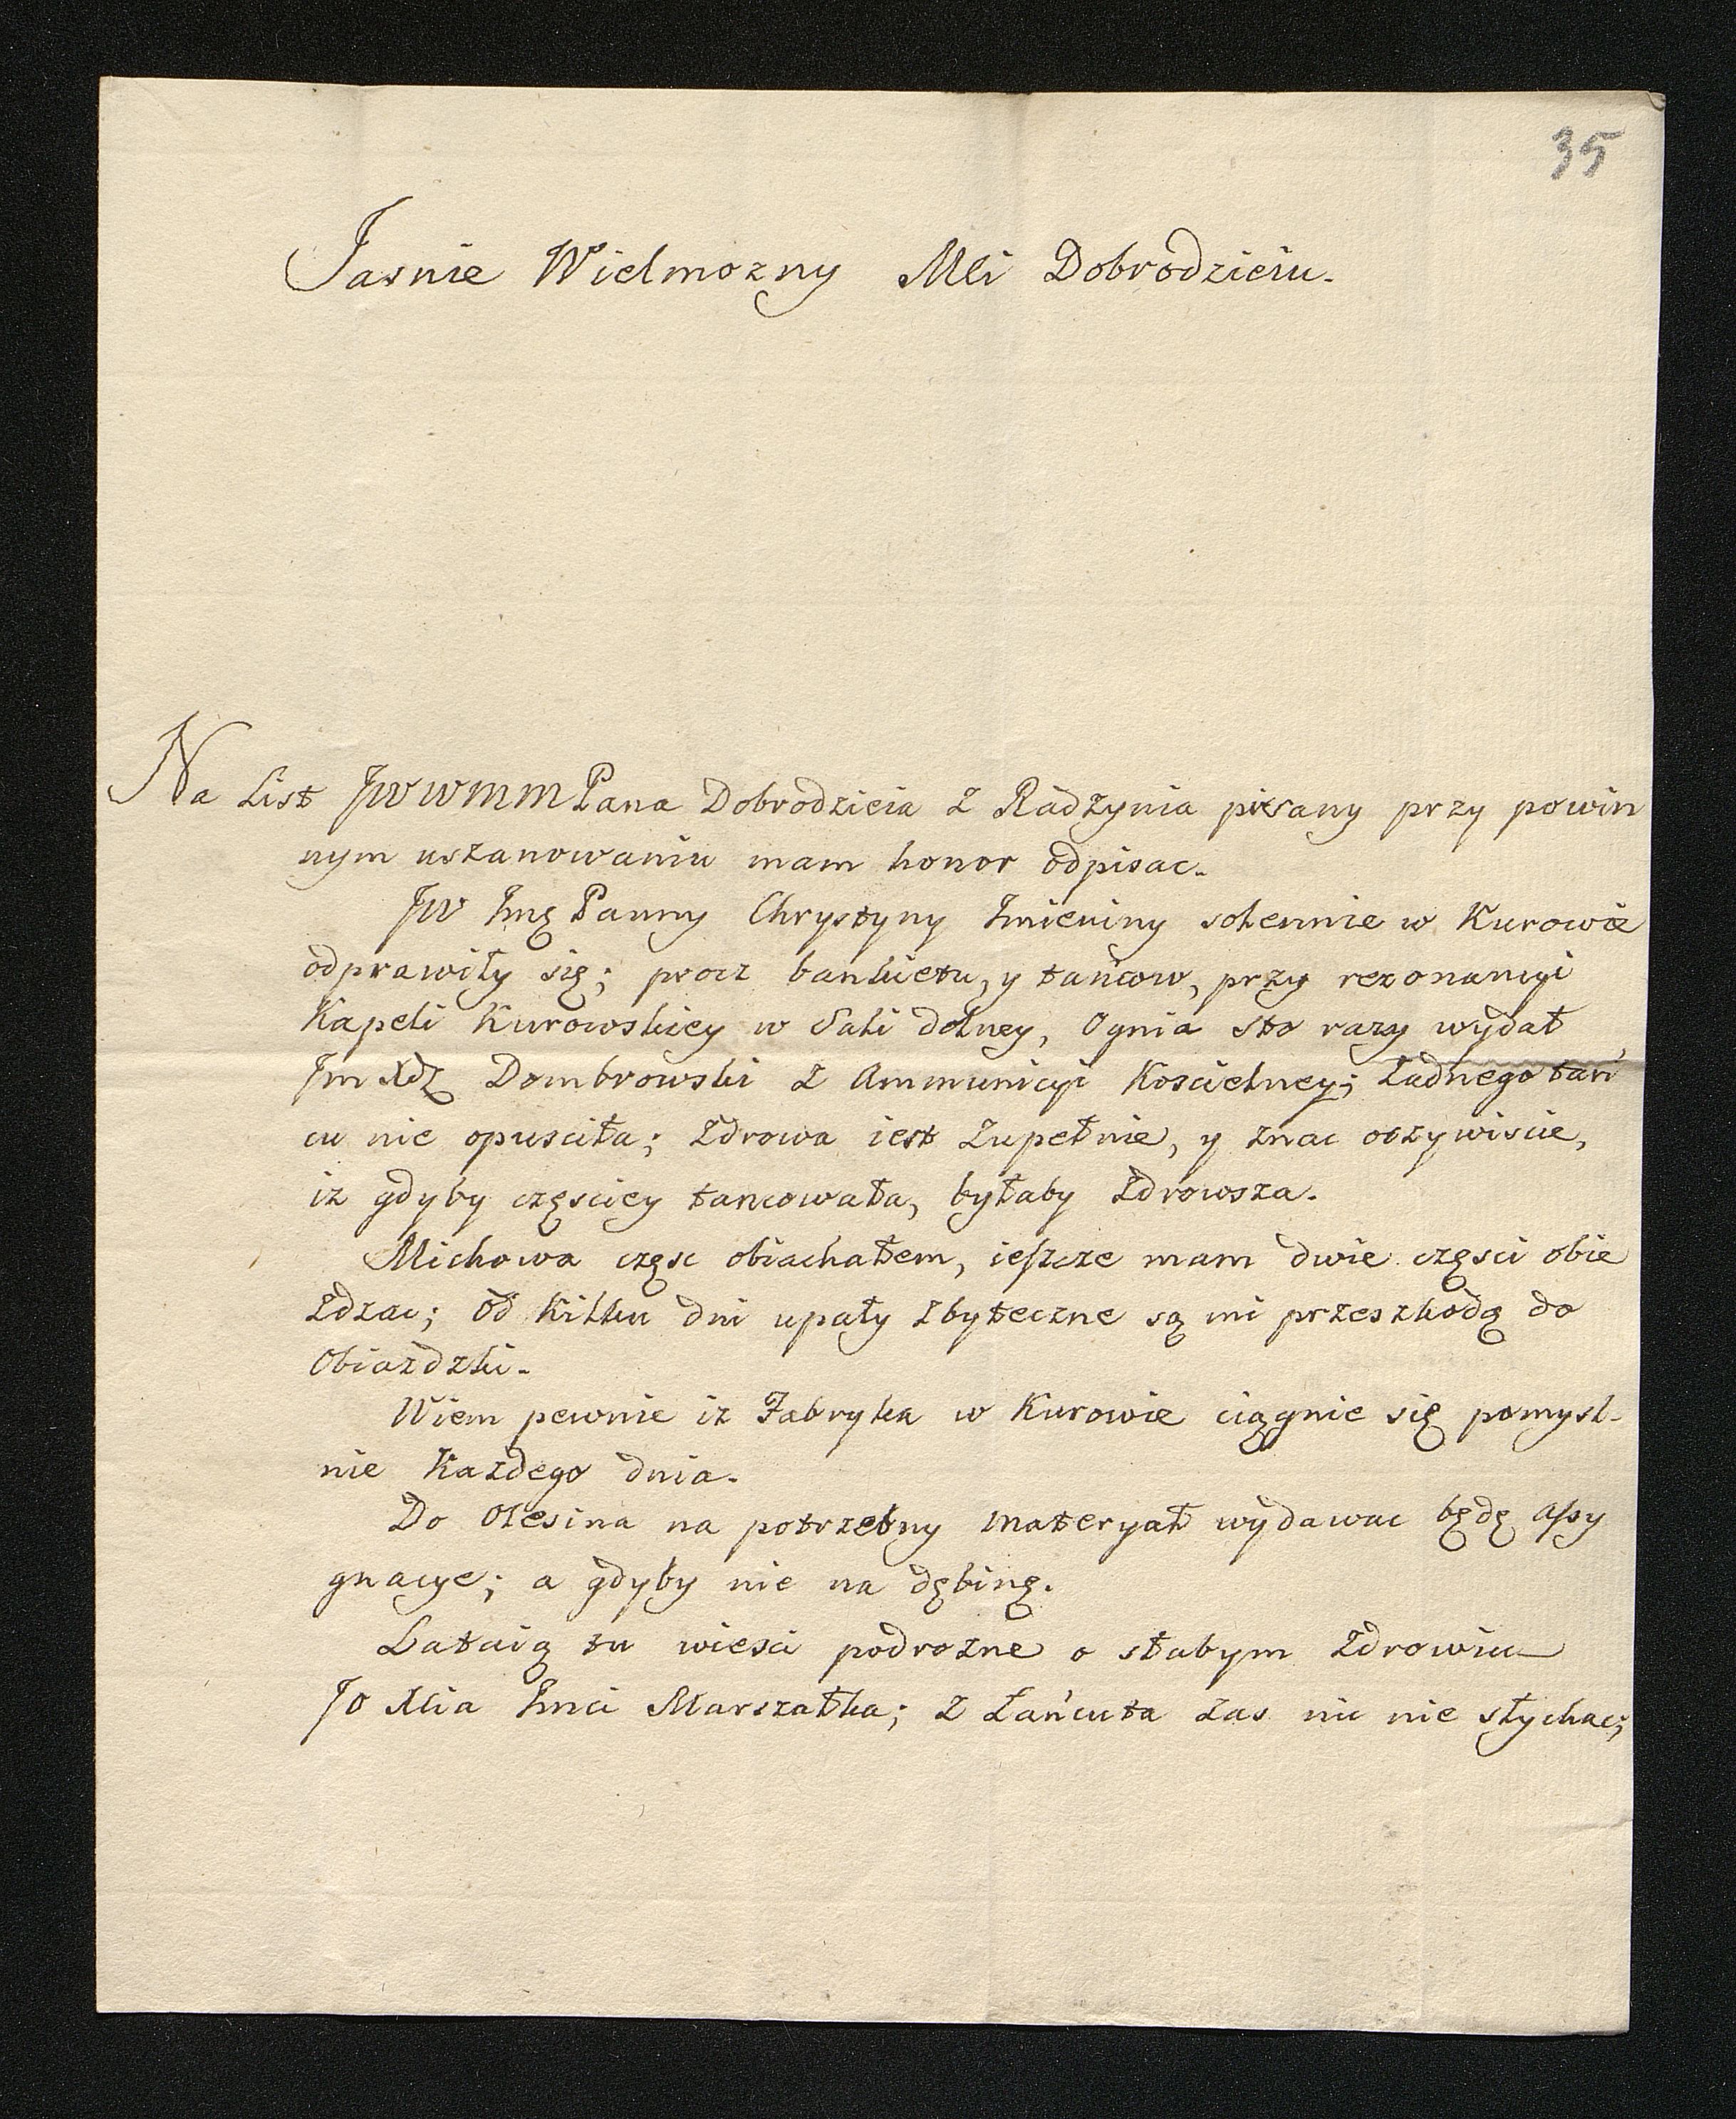 35
Jasnie Wielmozny Mci Dobrodzieiu.
Na List JWWMM Pana Dobrodzieia z Radzynia pisany przy powin
nym uszanowaniu mam honor odpisac.
JW Jmę Panny Chrystyny Jmieniny solennie w Kurowie
odprawiły się; procz bankietu, y tańcow, przy rezonancyi
Kapeli Kurowskiey w Sali dolney, Ognia sto razy wydał
Jm Xdz Dombrowski z Ammunicyi Koscielney; Zadnego tań
cu nie opusciła; Zdrowa iest Zupełnie, y znac oczywiscie,
iz gdyby częsciey tancowała, byłaby Zdrowsza.
Michowa częsc obiachałem, ieszcze mam dwie częsci obie
zdzac; od Kilku dni upały zbyteczne są mi przeszkodą do
Obiazdzki.
Wiem pewnie iz Fabryka w Kurowie ciągnie się pomysl-
nie Kazdego dnia.
Do Olesina na potrzebny materyał wydawac będę assy
gnacye; a gdyby nie na dębinę.
Lataią tu wiesci podrozne o słabym Zdrowiu
JO Xcia Jmci Marszałka; z Łańcuta zas nic nie słychac;